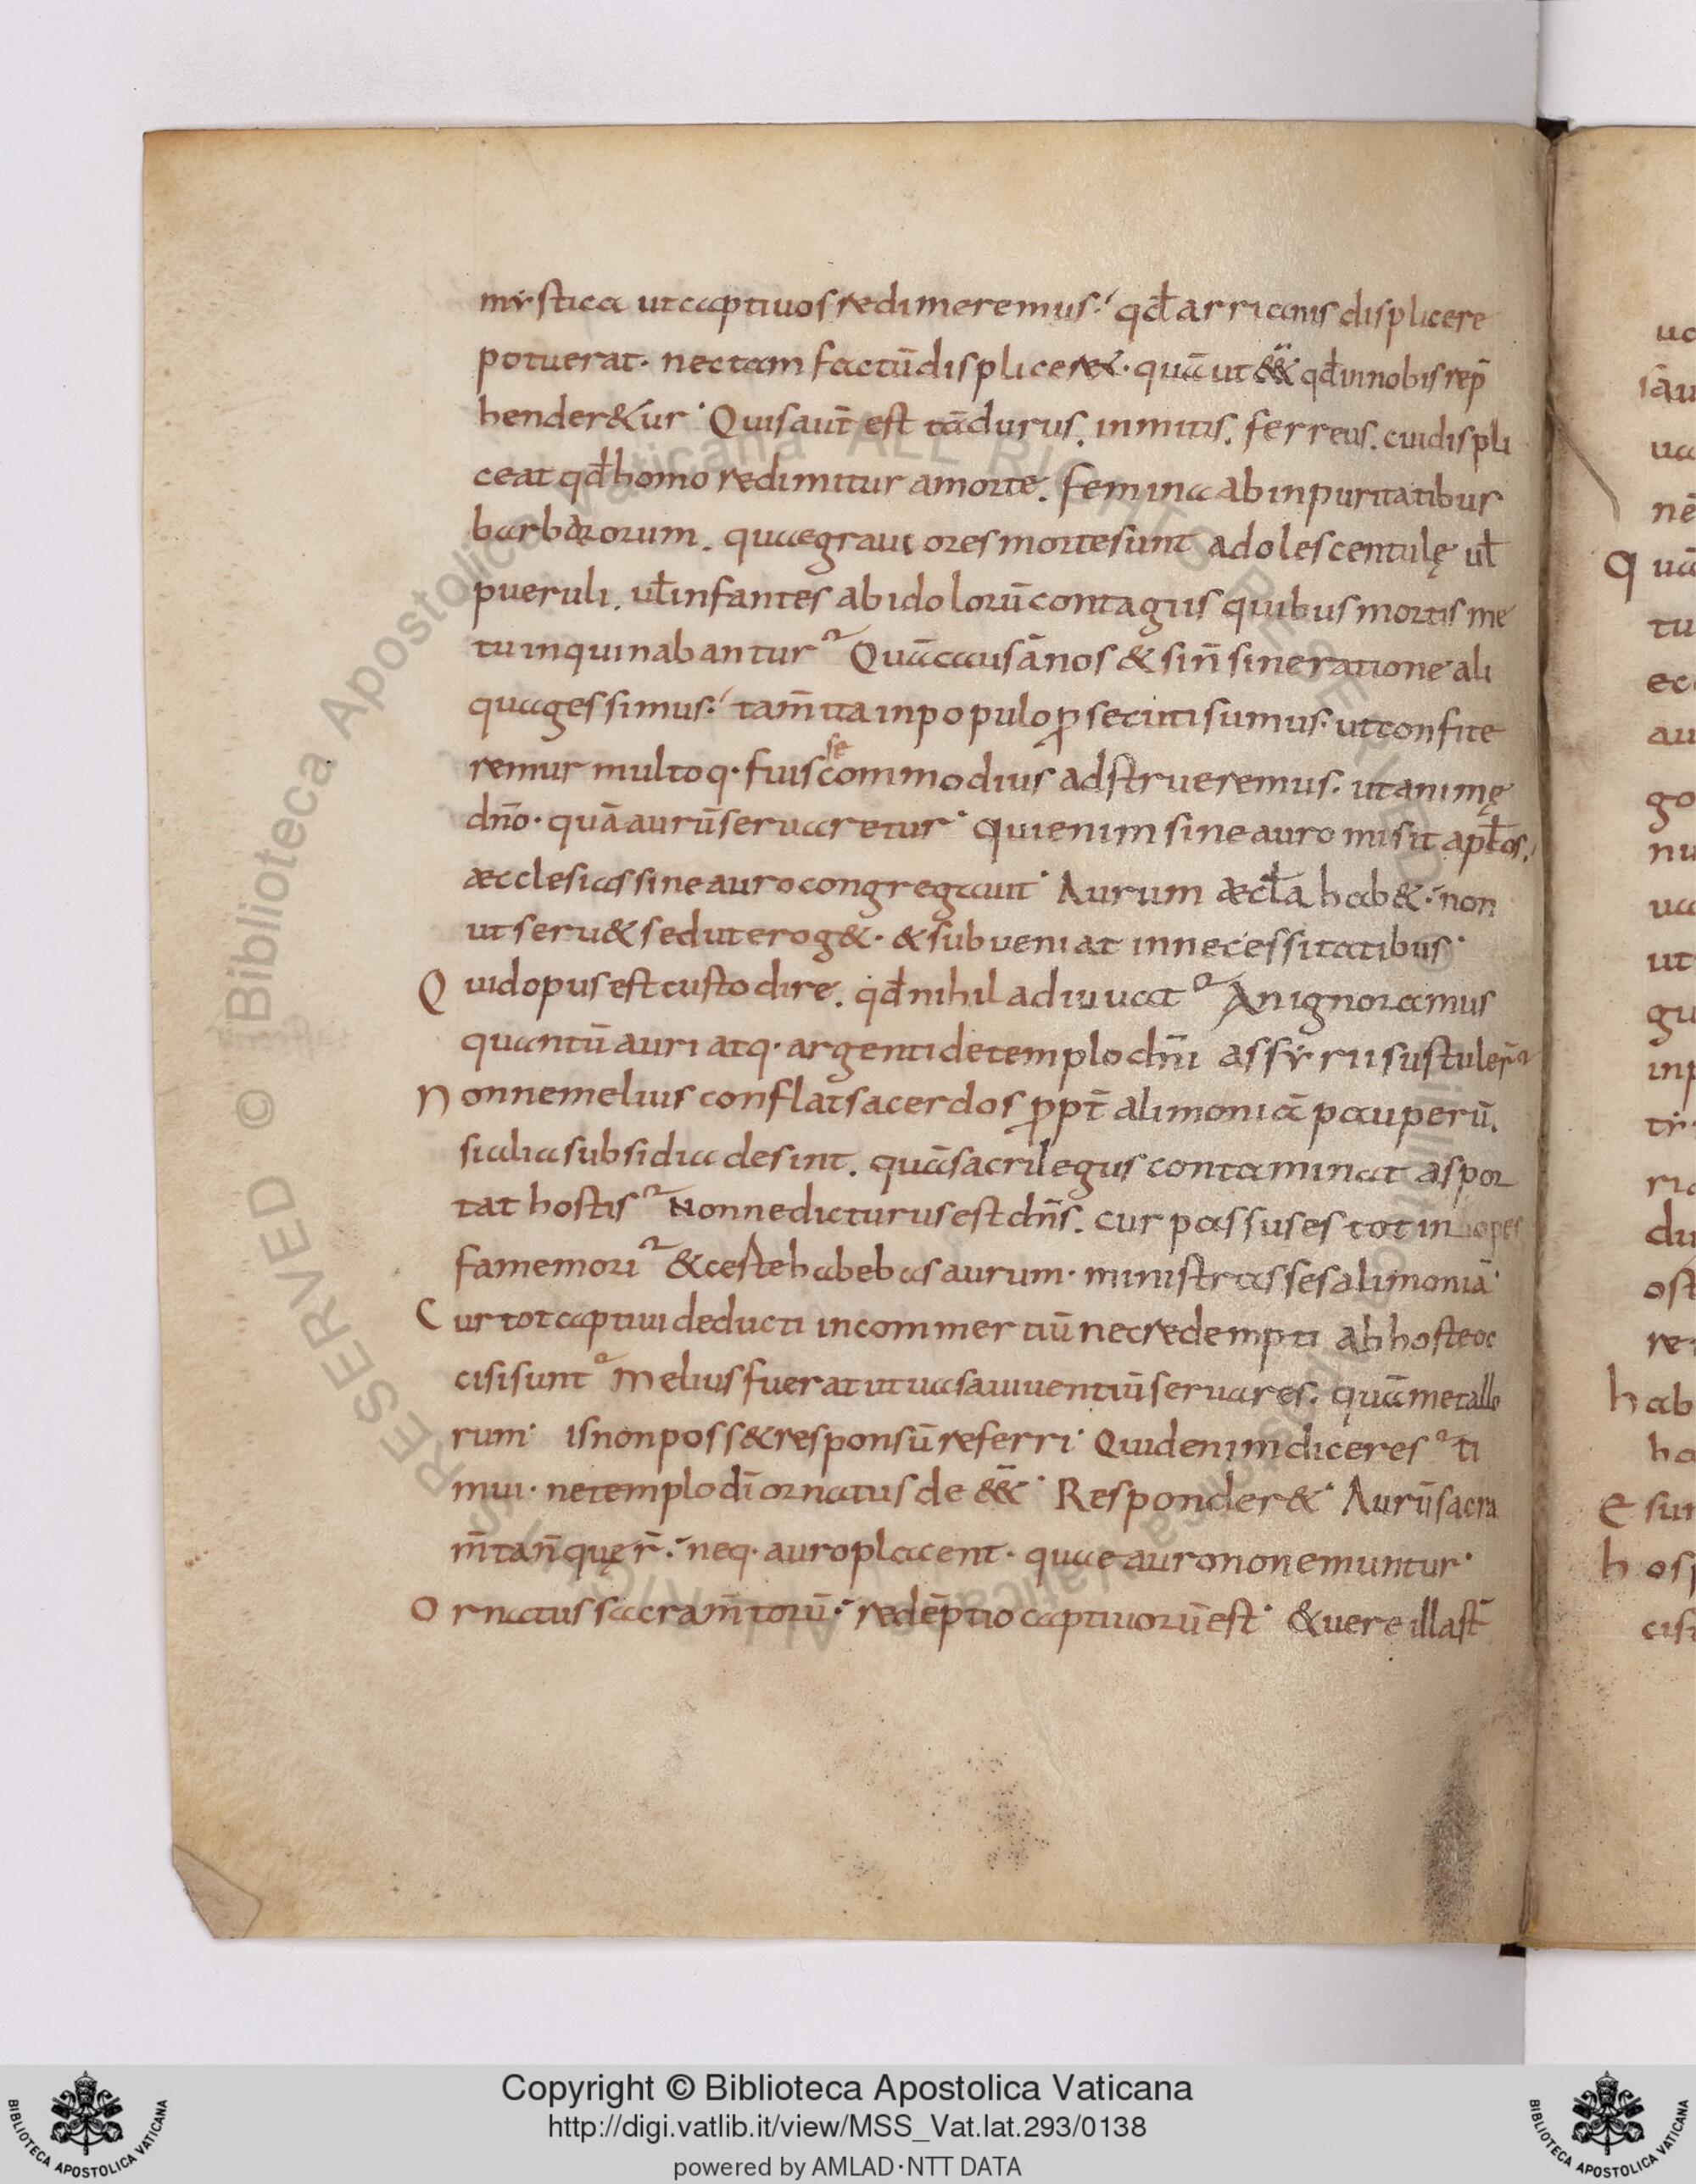 mẏstica ut captiuos redimeremus; qđ arrianis displicere
potuerat. nec tam factū displiceret. quā ut ēēt qđ in nobis rep̄
hender&ur. Quis aut̄ est tā durus. inmitis. ferreus. cui displi
ceat qđ homo redimitur amorte. femina ab inpuritatibus
barbarorum. quae grauiores morte sunt adolescentulę uł
pueruli. uł infantes ab idolorū contagiis quibus mortis me
tu inquinabantur? Quā causā nos & sin̄ sine ratione ali
qua gessimus; tam̄ ita in populo ꝓsecuti sumus. ut confite
remur multoq. fuisse commodius adstrueremus. ut animę
dn̄o. quā aurū seruaretur. Qui enim sine auro misit apłos.
æcclesias sine auro congregauit. Aurum æcła hab&. non
ut seru& sed ut erog&. & subueniat in necessitatibus.
Quid opus est custodire. qđ nihil adiuuat? An ignoramus
quantū auri atq. argenti de templo dn̄i assẏrii sustuler̄?
Nonne melius conflat sacerdos ꝓpt̄ alimoniā pauperū.
si alia subsidia desint. quā sacrilegus contaminat aspor
tat hostis? Nonne dicturus est dn̄s. cur passus es tot inopes
fame mori? & certe habebas aurum. ministrasses alimoniā.
Cur tot captiui deducti in commertiū nec redempti ab hoste oc
cisi sunt? Melius fuerat ut uasa uiuentiū seruares. quā metallo
rum. Is non poss& responsū referri. Quid enim diceres? ti
mui. ne templo dī ornatus de ēēt. Responder&. Aurū sacra
m̄ta n̄ quęr̄. neq. auro placent. quae auro non emuntur.
Ornatus sacram̄torū. redēptio captiuorū est. & uere illa st̄
Copyright © Biblioteca Apostolica Vaticana
http://digi.vatlib.it/view/MSS_Vat.lat.293/0138
powered by AMLAD·NTT DATA
BIBLIOTECA APOSTOLICA VATICANA
BIBLIOTECA APOSTOLICA VATICANA